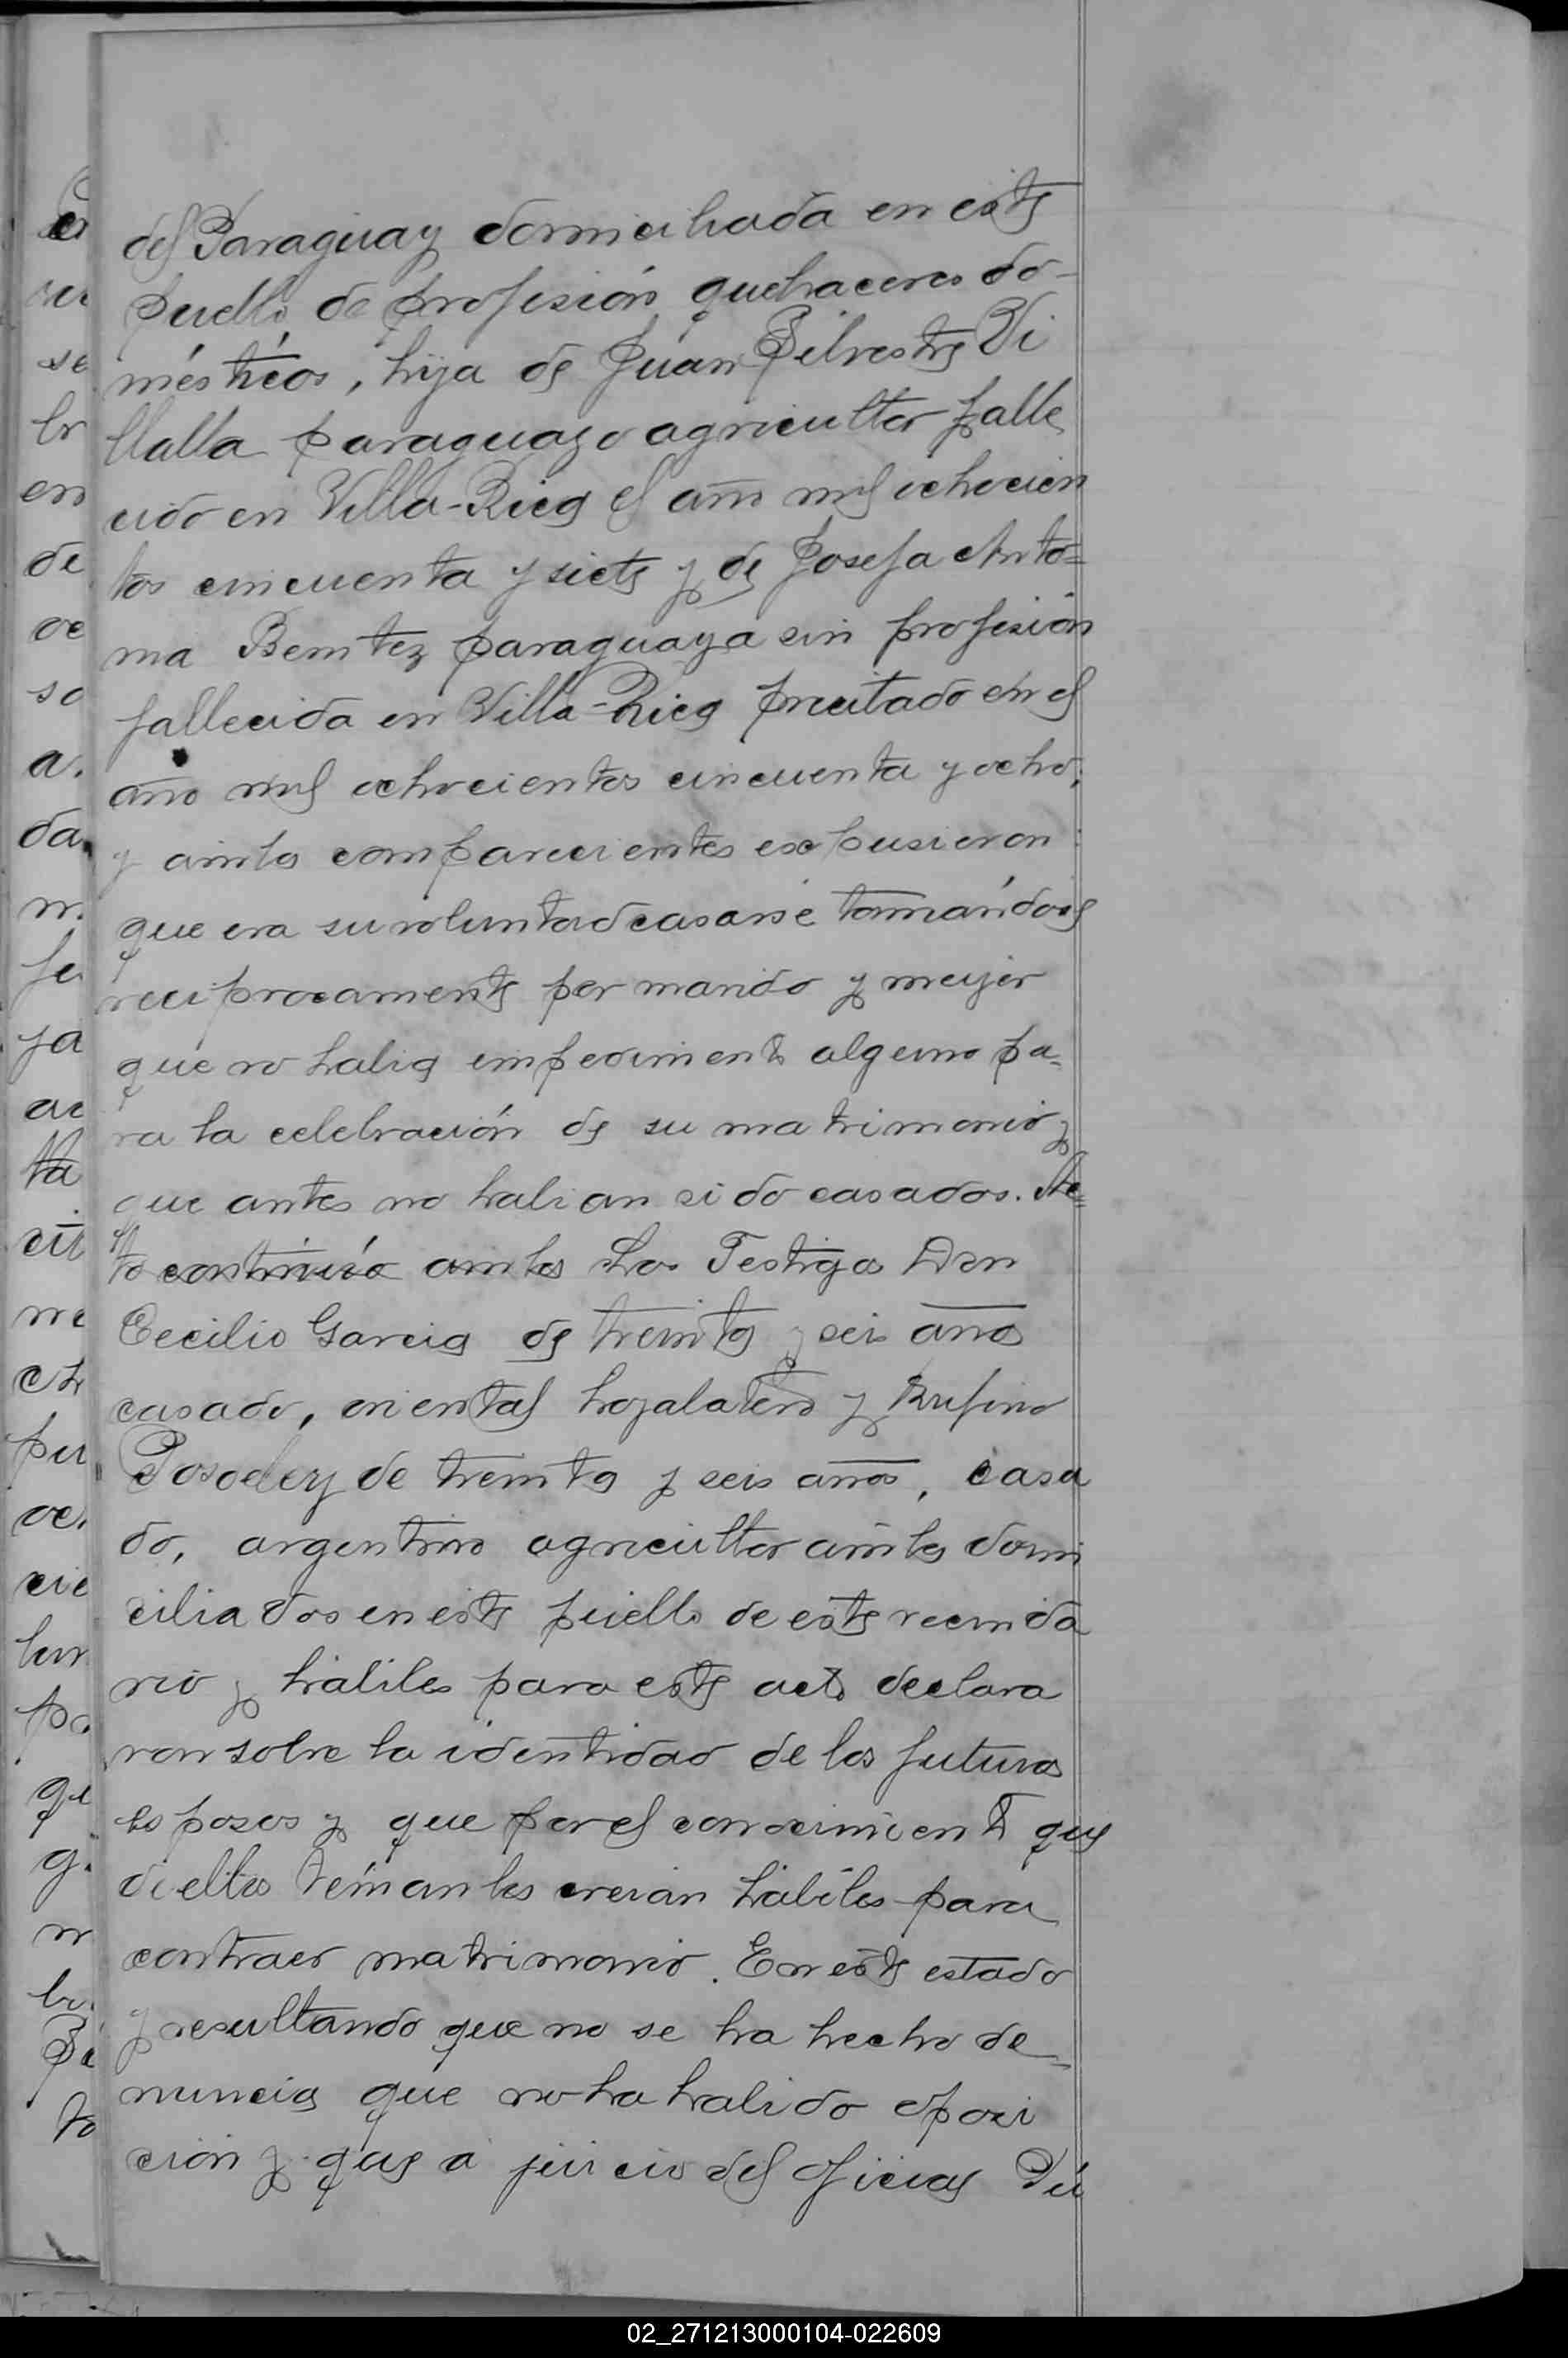 del Paraguay domiciliada en este
pueblo, de profesión quehaceres do-
mésticos, hija de Juan Silvestre Vi
llalla paraguayo agricultor falle
cido en Villa-Rica el año mil ochocien
tos cincuenta y siete y de Josefa Anto=
nia Benitez paraguaya sin profesión
fallecida en Villa-Rica precitado en el
año mil ochocientos cincuenta y ocho;
y ambos comparecientes expusieron:
que era su voluntad casarse tomándose
reciprocamente por marido y mujer
que no habia impedimento alguno pa=
ra la celebración de su matrimonio y
que antes no habian sido casados. Ac=
to continuó ambos los Testigos Don
Cecilio Garcia de treinta y seis años
casado, oriental hojalatero y Rufino
de treinta y seis años, casa
do, argentino agricultor ambos domi
ciliados en este pueblo de este vecinda
rio y hábiles para este acto declara
ron sobre la identidad de los futuros
esposos y que por el conocimiento que
de ellos tenian los creian hábiles para
contraer matrimonio. En este estado
y resultando que no se ha hecho de=
nuncia que no ha habido oposi
ción y que a juicio del oficial Pú
02_271213000104-022609